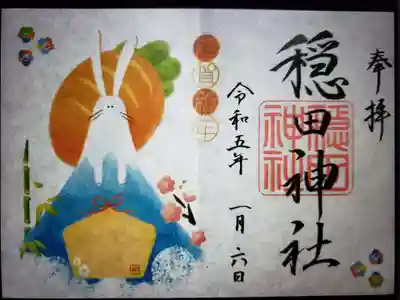 奉拝
穏田神社
穏田
神社
令和五年
一月六日